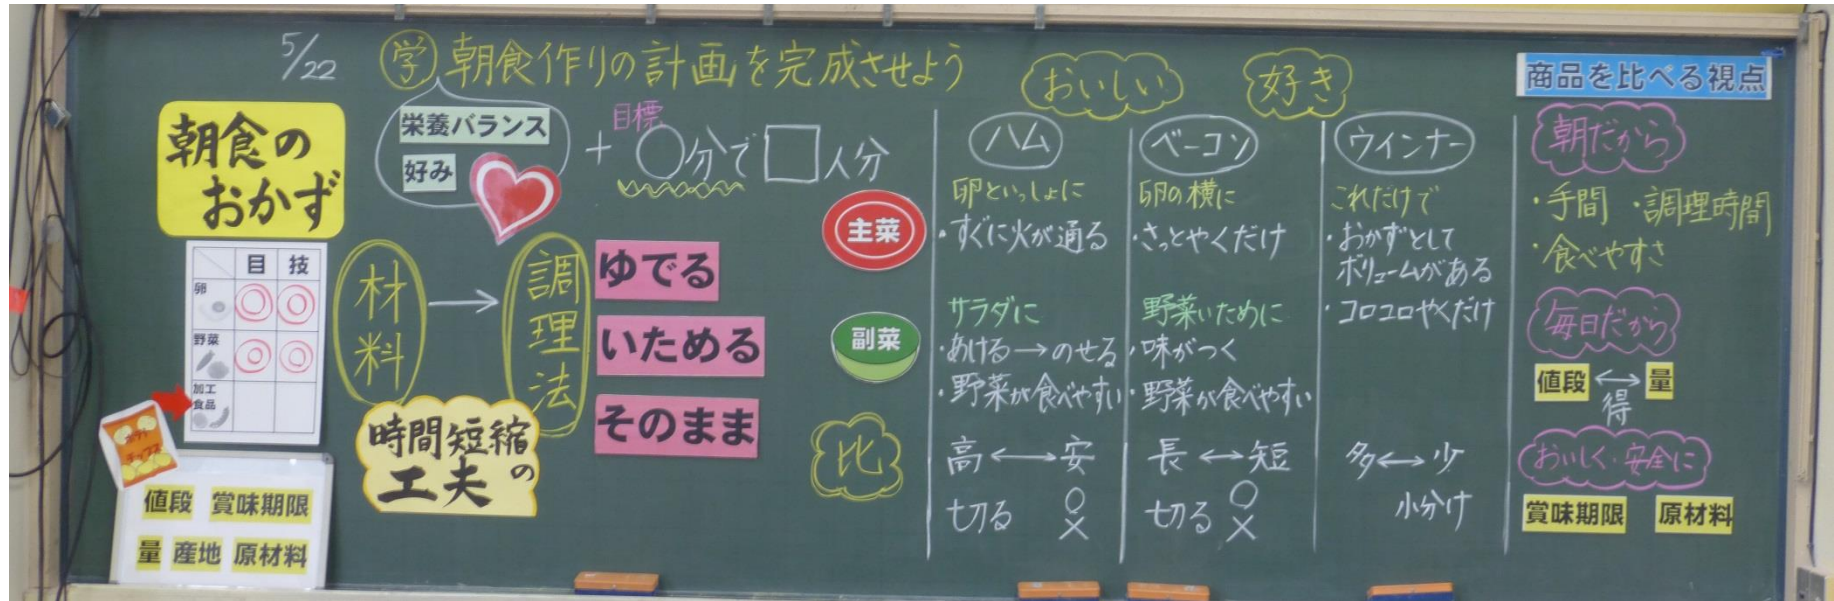 5/22
学 朝食作りの計画を完成させよう
栄養バランス
好み
＋ 目標 ○分で□人分
朝食の
おかず
目 技
卵 ◎ ◎
野菜 ◎ ◎
加工
食品
ポテト
チップス
値段 賞味期限
量 産地 原材料
材料 → 調理法
時間短縮の
工夫
ゆでる
いためる
そのまま
主菜
副菜
比
おいしい
好き
ハム
卵といっしょに
・すぐに火が通る
サラダに
・あける→のせる
・野菜が食べやすい
高↔安
切る ○
×
ベーコン
卵の横に
・さっとやくだけ
野菜いために
・味がつく
・野菜が食べやすい
長↔短
切る ○
×
ウインナー
これだけで
・おかずとして
ボリュームがある
・コロコロやくだけ
多↔少
小分け
商品を比べる視点
朝だから
・手間 ・調理時間
・食べやすさ
毎日だから
値段 ↔ 量
得
おいしく・安全に
賞味期限 原材料